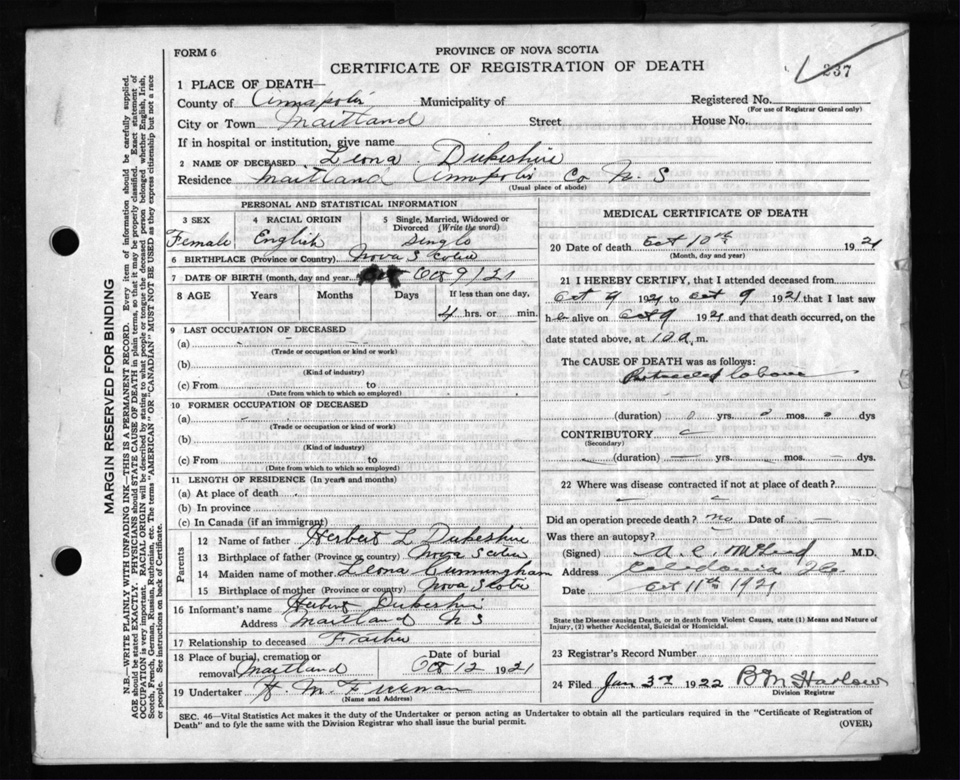 FORM 6
PROVINCE OF NOVA SCOTIA
CERTIFICATE OF REGISTRATION OF DEATH
237
1 PLACE OF DEATH—
County of Annapolis Municipality of Registered No.
(For use of Registrar General only)
City or Town Maitland Street House No.
If in hospital or institution, give name
2 NAME OF DECEASED Leona Dukeshire
Residence Maitland Annapolis Co N. S
(Usual place of abode)
PERSONAL AND STATISTICAL INFORMATION
3 SEX 4 RACIAL ORIGIN 5 Single, Married, Widowed or Divorced (Write the word)
Female English Single
6 BIRTHPLACE (Province or Country) Nova Scotia
7 DATE OF BIRTH (month, day and year) Oct 9/21
8 AGE Years Months Days If less than one day,
4 hrs. or min.
9 LAST OCCUPATION OF DECEASED
(a)
(Trade or occupation or kind or work)
(b)
(Kind of industry)
(c) From to
(Date from which to which so employed)
10 FORMER OCCUPATION OF DECEASED
(a)
(Trade or occupation or kind of work)
(b)
(Kind of industry)
(c) From to
(Date from which to which so employed)
11 LENGTH OF RESIDENCE (In years and months)
(a) At place of death
(b) In province
(c) In Canada (if an immigrant)
Parents
12 Name of father Herbert L Dukeshire
13 Birthplace of father (Province or country) Nova Scotia
14 Maiden name of mother Leona Cunningham
15 Birthplace of mother (Province or country) Nova Scotia
16 Informant's name Herbert Dukeshire
Address Maitland N S
17 Relationship to deceased Father
18 Place of burial, cremation or removal Maitland Date of burial Oct 12 1921
19 Undertaker H. M. Freeman
(Name and Address)
MEDICAL CERTIFICATE OF DEATH
20 Date of death Oct 10th 1921
(Month, day and year)
21 I HEREBY CERTIFY, that I attended deceased from
Oct 9 1921 to Oct 9 1921 that I last saw
h alive on Oct 9 1921 and that death occurred, on the
date stated above, at 10 a. m.
The CAUSE OF DEATH was as follows:
Protracted labour
(duration) 0 yrs. mos. dys
CONTRIBUTORY
(Secondary)
(duration) yrs. mos. dys.
22 Where was disease contracted if not at place of death?
Did an operation precede death? no Date of
Was there an autopsy?
(Signed) A. C. M.D.
Address Caledonia
Date Oct 11th 1921
State the Disease causing Death, or in death from Violent Causes, state (1) Means and Nature of
Injury, (2) whether Accidental, Suicidal or Homicidal.
23 Registrar's Record Number
24 Filed Jan 3rd 1922 B M Harlow
Division Registrar
SEC. 46—Vital Statistics Act makes it the duty of the Undertaker or person acting as Undertaker to obtain all the particulars required in the "Certificate of Registration of
Death" and to fyle the same with the Division Registrar who shall issue the burial permit.
(OVER)
MARGIN RESERVED FOR BINDING
N.B.—WRITE PLAINLY WITH UNFADING INK—THIS IS A PERMANENT RECORD. Every item of information should be carefully supplied.
AGE should be stated EXACTLY. PHYSICIANS should STATE CAUSE OF DEATH in plain terms, so that it may be properly classified. Exact statement of
OCCUPATION is very important. RACIAL ORIGIN will be described by stating to what people or tongue the deceased person belonged whether English, Irish,
Scotch, French, German, Russian, Ruthenian, etc. The terms "AMERICAN" OR "CANADIAN" MUST NOT BE USED as they express citizenship but not a race
or people. See instructions on back of Certificate.